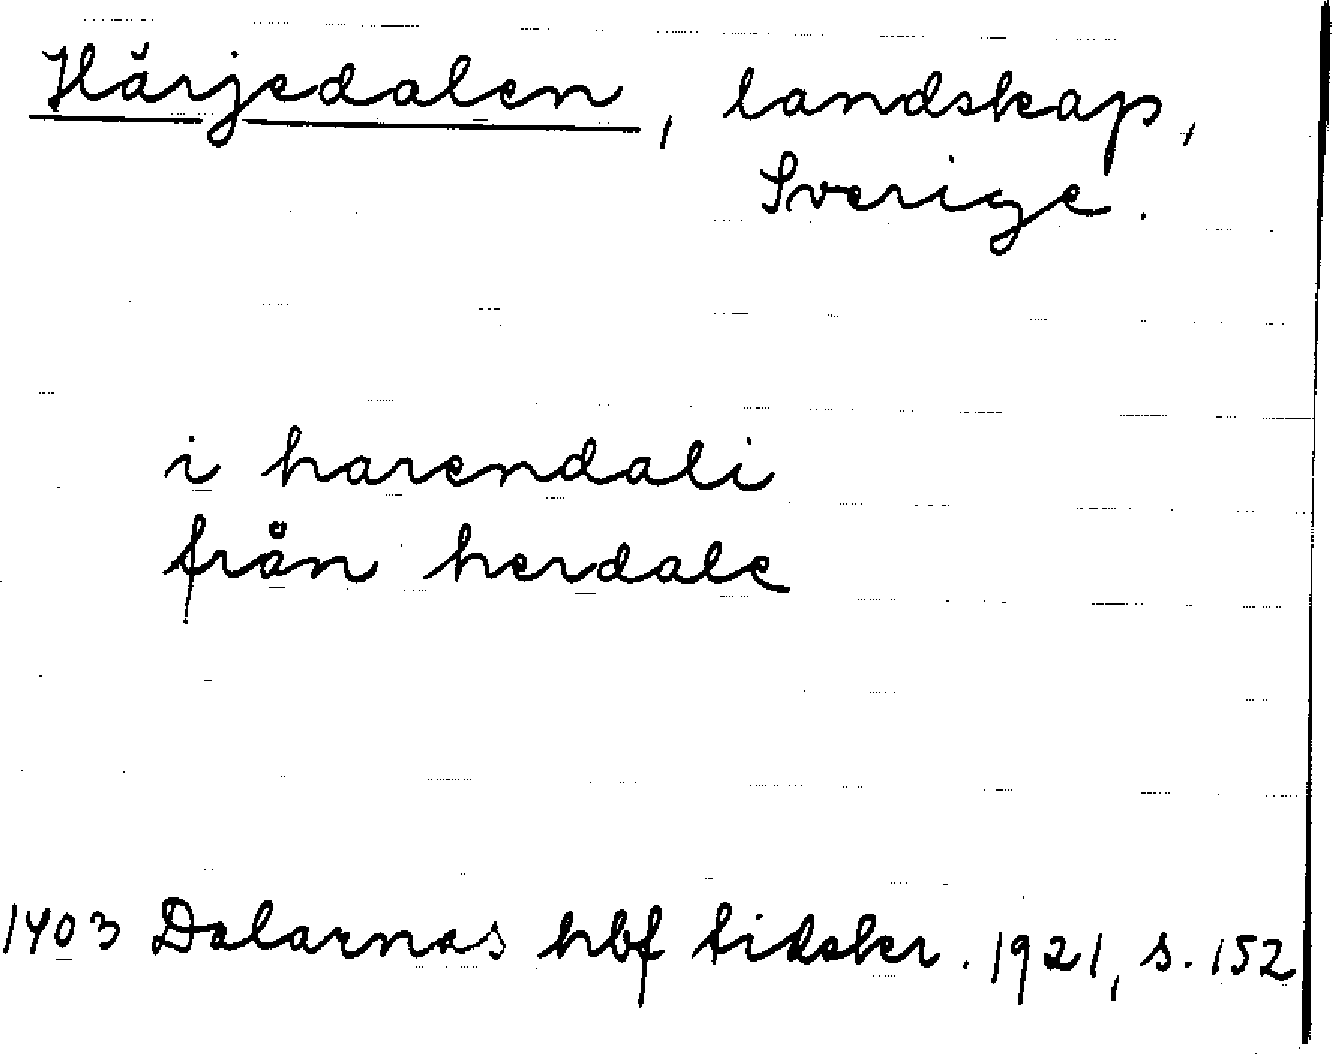 Härjedalen, landskap,
Sverige.
i harendali
från herdale
1403 Dalarnas hbf tidskr. 1921, s. 152